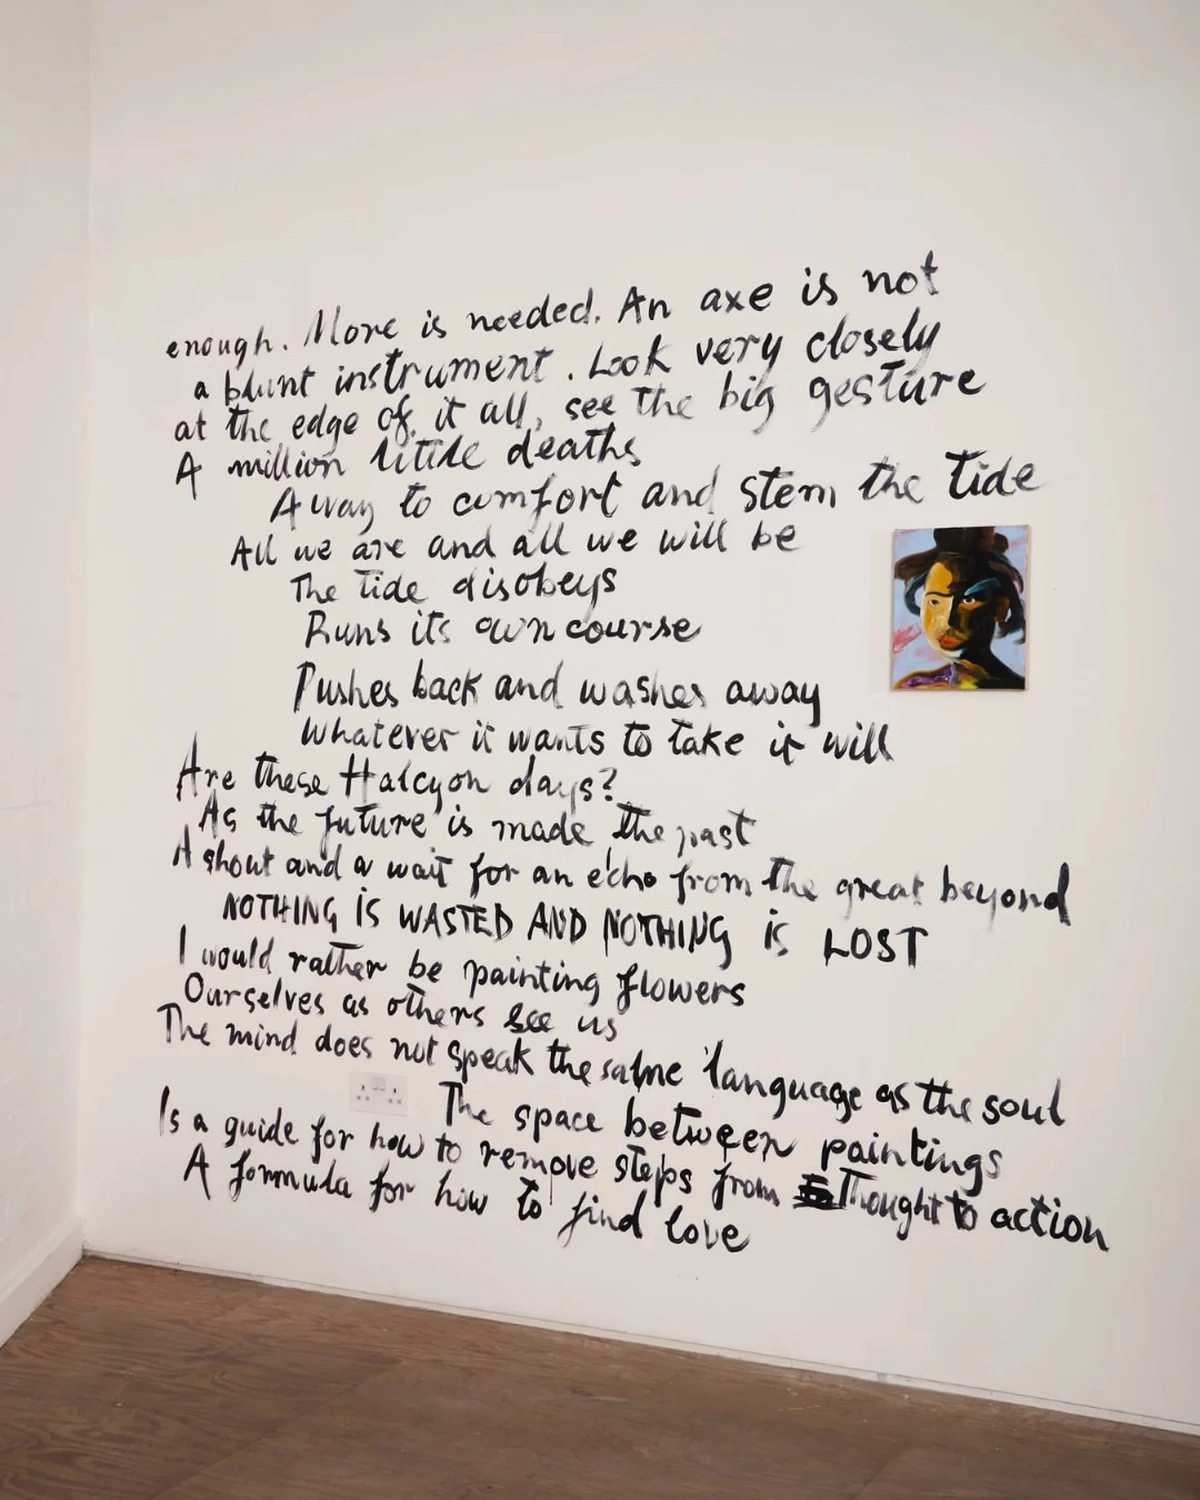 enough. More is needed. An axe is not
a blunt instrument. Look very closely
at the edge of it all, see the big gesture
A million little deaths
A way to comfort and stem the tide
All we are and all we will be
The tide disobeys
Runs its own course
Pushes back and washes away
Whatever it wants to take it will
Are these Halcyon days?
As the future is made the past
A shout and a wait for an echo from the great beyond
NOTHING IS WASTED AND NOTHING is LOST
I would rather be painting flowers
Ourselves as others see us
The mind does not speak the same language as the soul
The space between paintings
Is a guide for how to remove steps from Thought to action
A formula for how to find love